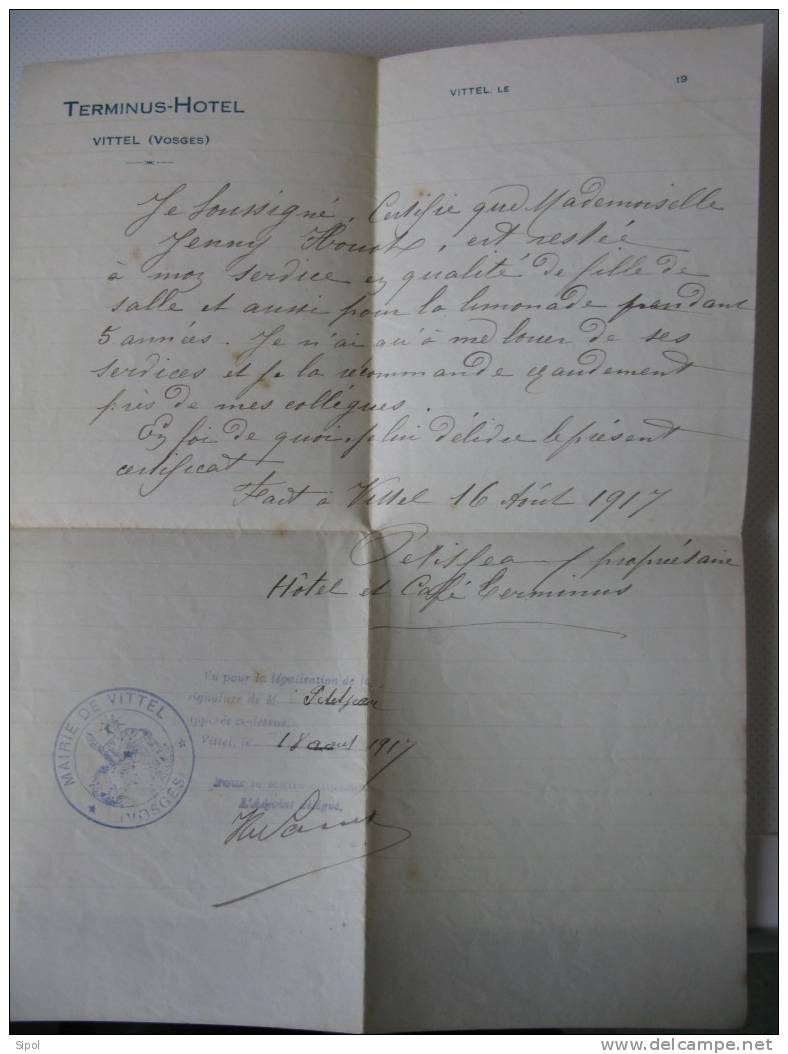 TERMINUS-HOTEL
VITTEL (VOSGES)
VITTEL, LE 19
Je soussigné, Certifie que Mademoiselle
Jenny Houot, est restée
à mon service en qualité de fille de
salle et aussi pour la limonade pendant
5 années. Je n'ai qu'à me louer de ses
services et je la recommande chaudement
près de mes collègues.
En foi de quoi, je lui délivre le présent
certificat
Fait à Vittel 16 Août 1917
Petitjean propriétaire
Hôtel et Café Terminus
Vu pour la légalisation de la
signature de M Petitjean
apposée ci-dessus.
Vittel, le 18 aout 1917
Pour
L'Adjoint délégué,
MAIRIE DE VITTEL
(VOSGES)
Sipol
www.delcampe.net